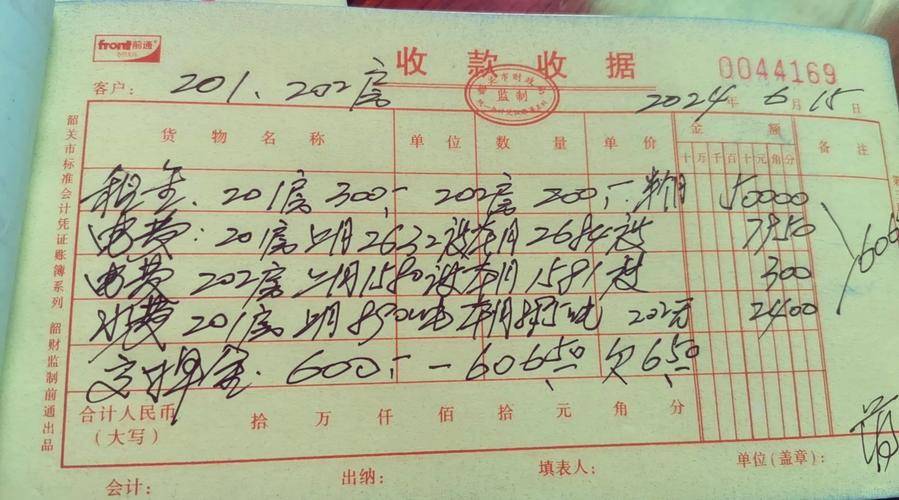 front前通
收款收据
0044169
客户： 201、202房
2024年6月15日
货物名称 单位 数量 单价 金额 备注
十万千百十元角分
租金. 201房300，- 202房200，- 半月 50000
电费：201房上月2632度本月2684度 7950
电费 202房上月1580度本月1581度 300
水费 201房上月890吨本月895吨 202元 2400
6065
交押金. 600，- — 606.50 欠6.50
合计人民币（大写） 拾 万 仟 佰 拾 元 角 分
会计： 出纳： 填表人： 单位（盖章）：
韶关市标准会计凭证账簿系列 韶财监制前通出品
监制